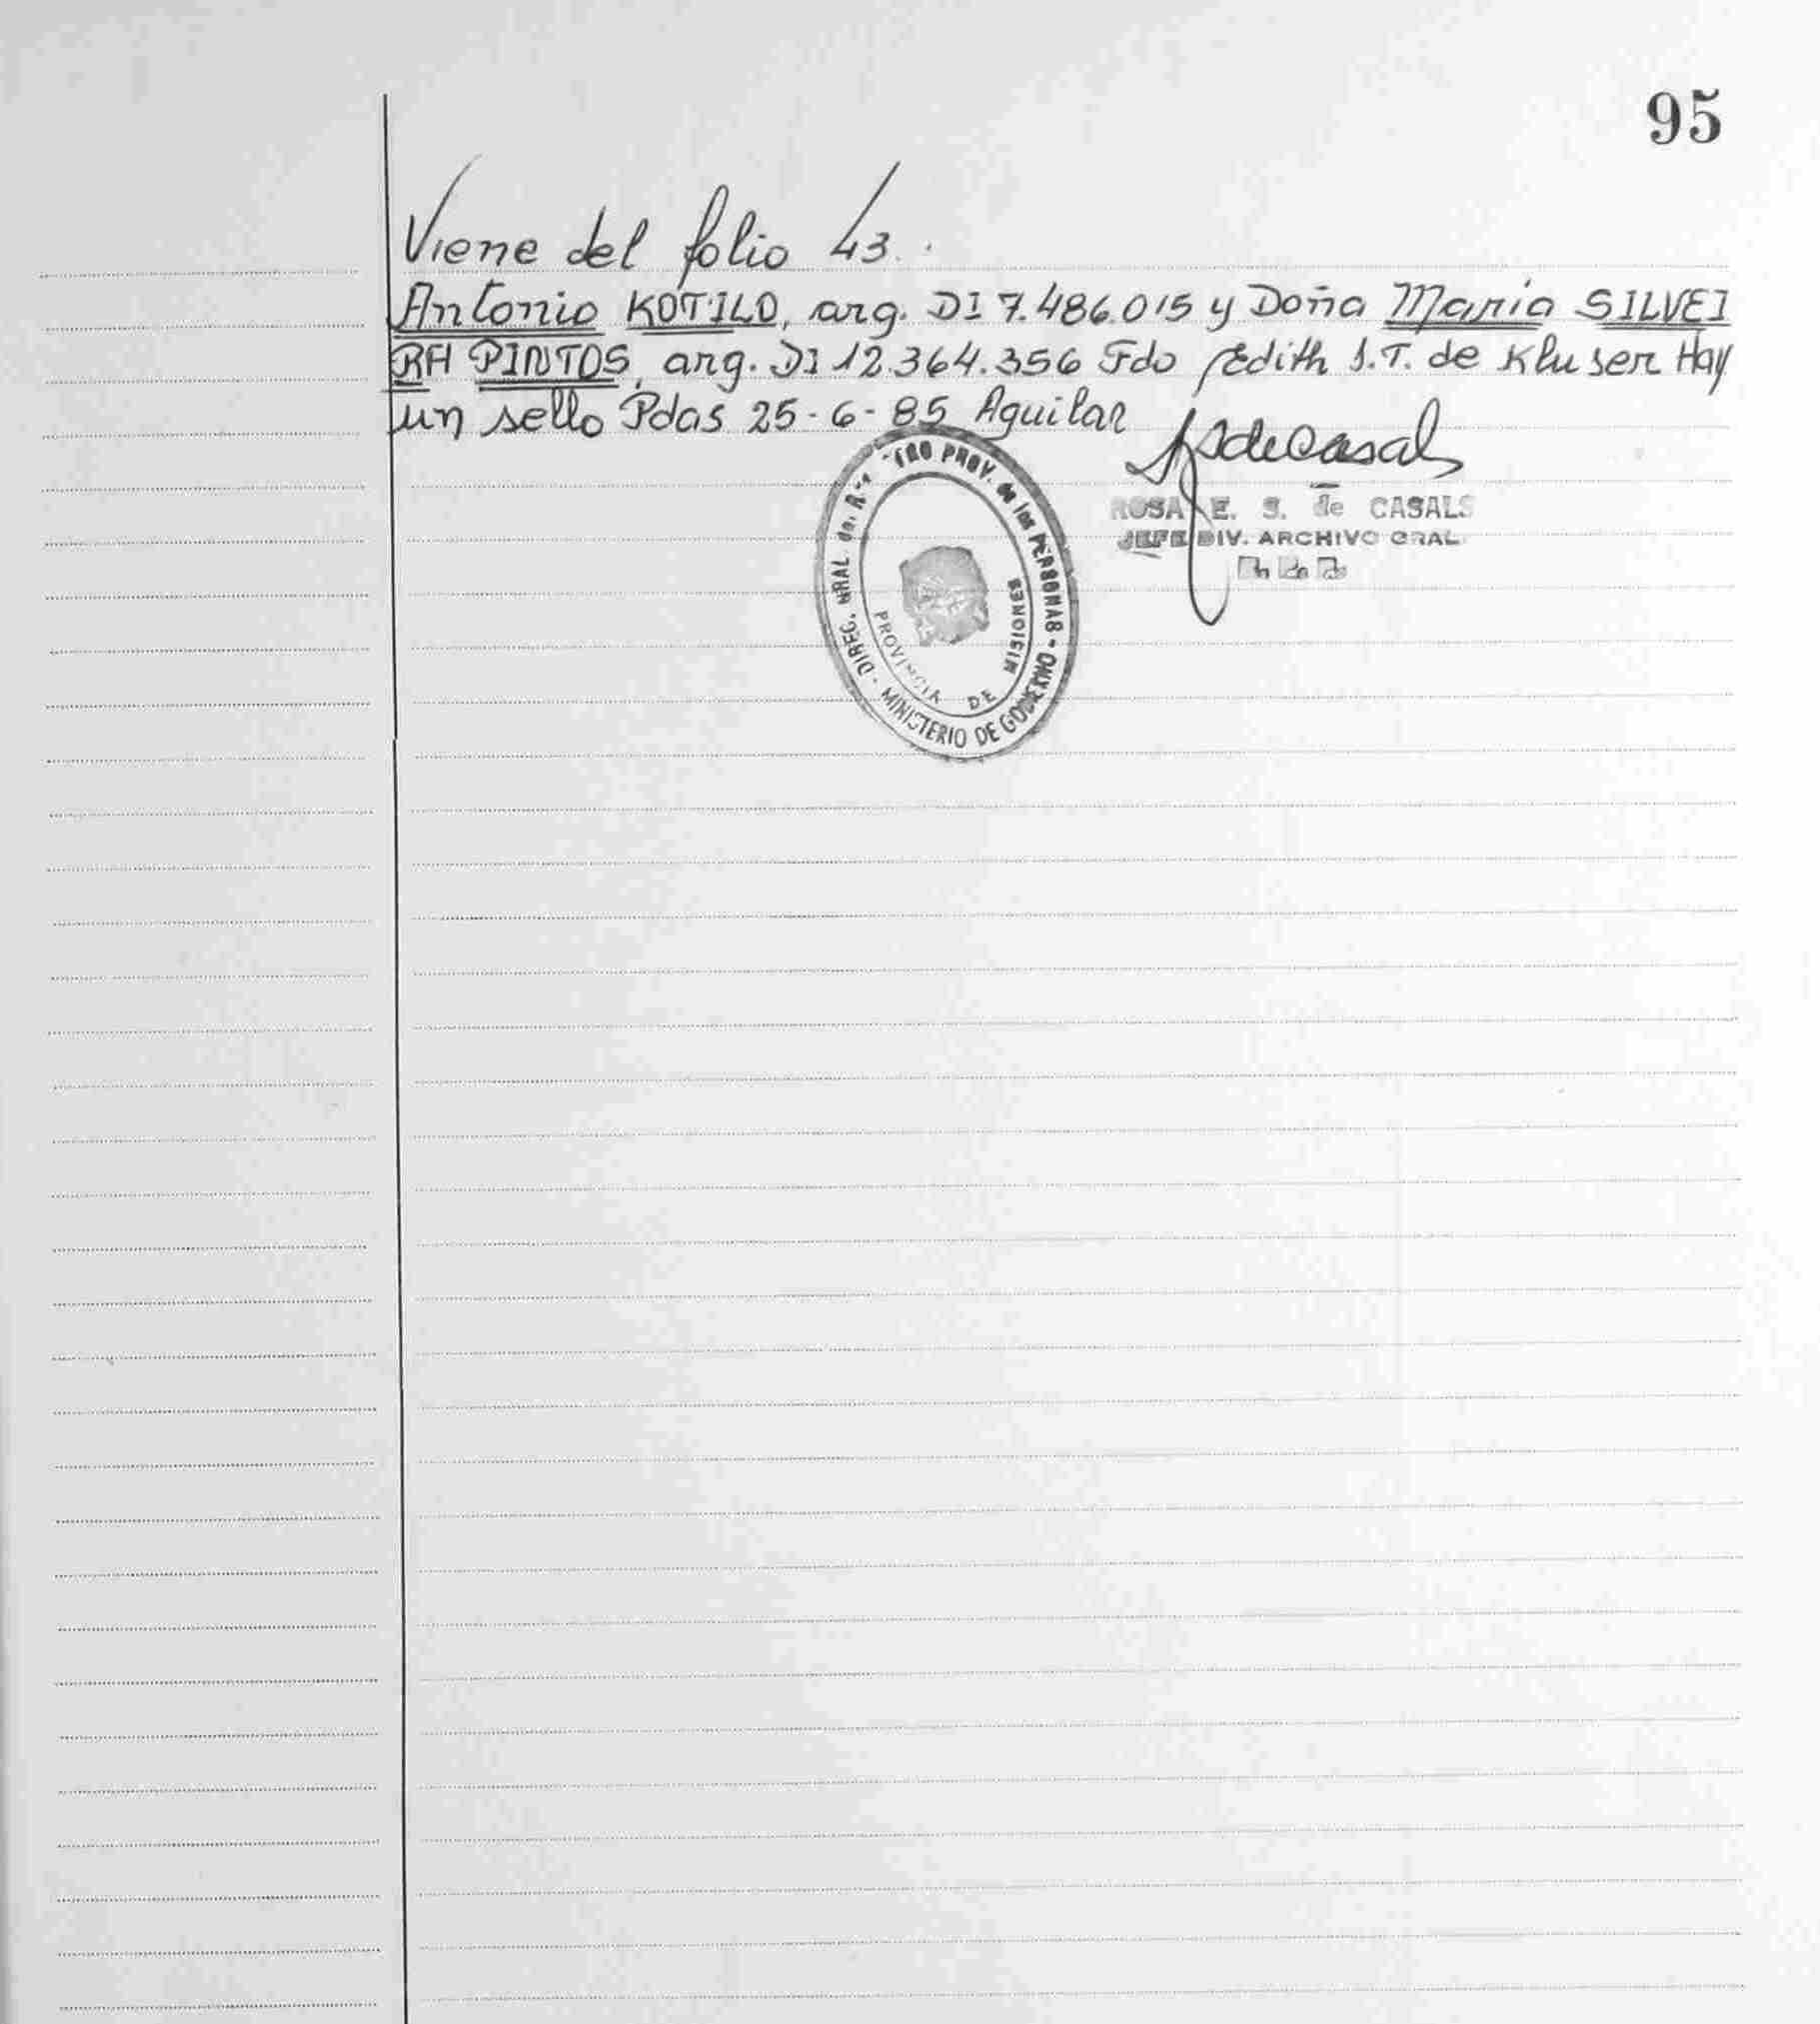 95
Viene del folio 43.
Antonio KOTILO, arg. DI 7.486.015 y Doña María SILVEI
RA PINTOS, arg. DI 12.364.356 Fdo Edith S.T. de Kluser Hay
un sello Pdas 25-6-85 Aguilar
ROSA E. S. de CASALS
JEFE DIV. ARCHIVO GRAL.
PROV. de las PERSONAS - MINISTERIO DE GOBIERNO - DIREC.
PROVINCIA DE MISIONES